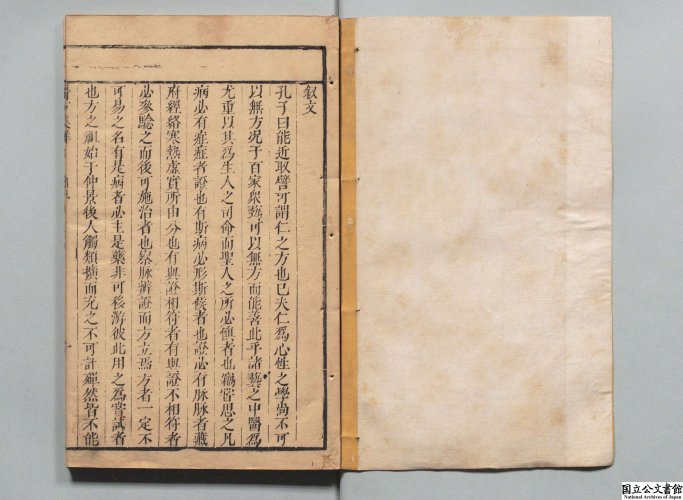 叙文
孔子曰能近取譬可謂仁之方也已夫仁爲心性之學尚不可
以無方况于百家衆藝可以無方而能善此乎諸藝之中醫爲
尤重以其爲生人之司命而聖人之所必慎者也竊嘗思之凡
病必有症症者證也有斯病必形斯候者也證必有脉脉者藏
府經絡寒熱虛實所由分也有與證相符者有與證不相符者
必參驗之而後可施治者也察脉辨證而方立焉方者一定不
可易之名有是病者必主是藥非可移游彼此用之爲嘗試者
也方之祖始于仲景後人觸類擴而充之不可計殫然皆不能
国立公文書館
National Archives of Japan